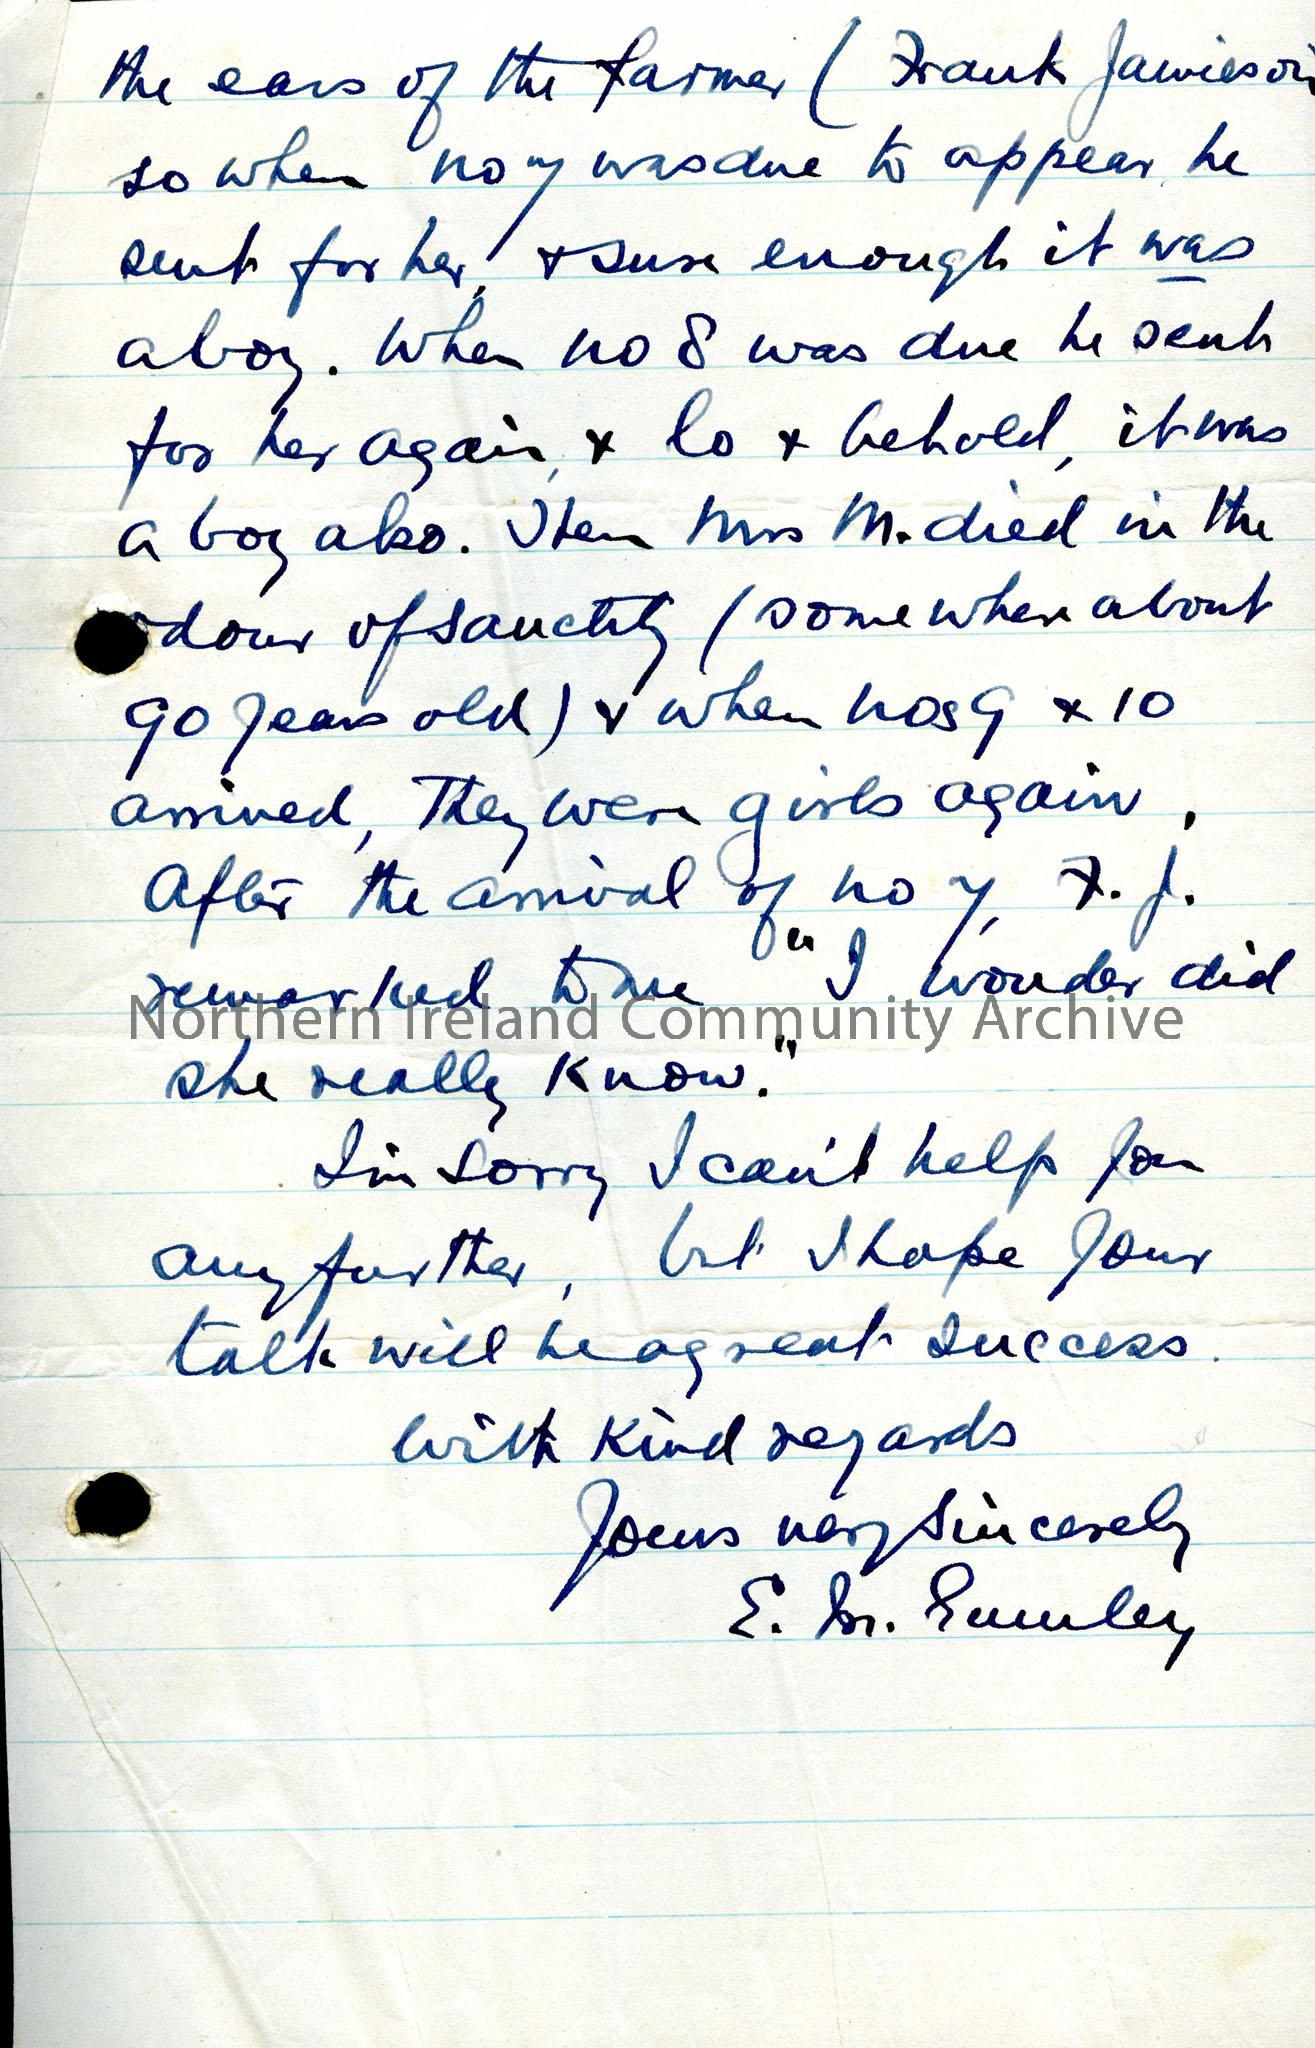 the ears of the farmer (Frank Jamieson
so when no 7 was due to appear, he
sent for her, & sure enough it was
a boy. When no 8 was due he sent
for her again, & lo & behold, it was
a boy also. Then Mrs M. died in the
odour of sanctity (somewhere about
90 years old) & when nos 9 & 10
arrived, they were girls again.
After the arrival of no 7, F. J.
remarked to me "I wonder did
Northern Ireland Community Archive
she really know."
I'm sorry I can't help you
any further, but I hope your
talk will be a great success.
With kind regards
Yours very sincerely
E. M.